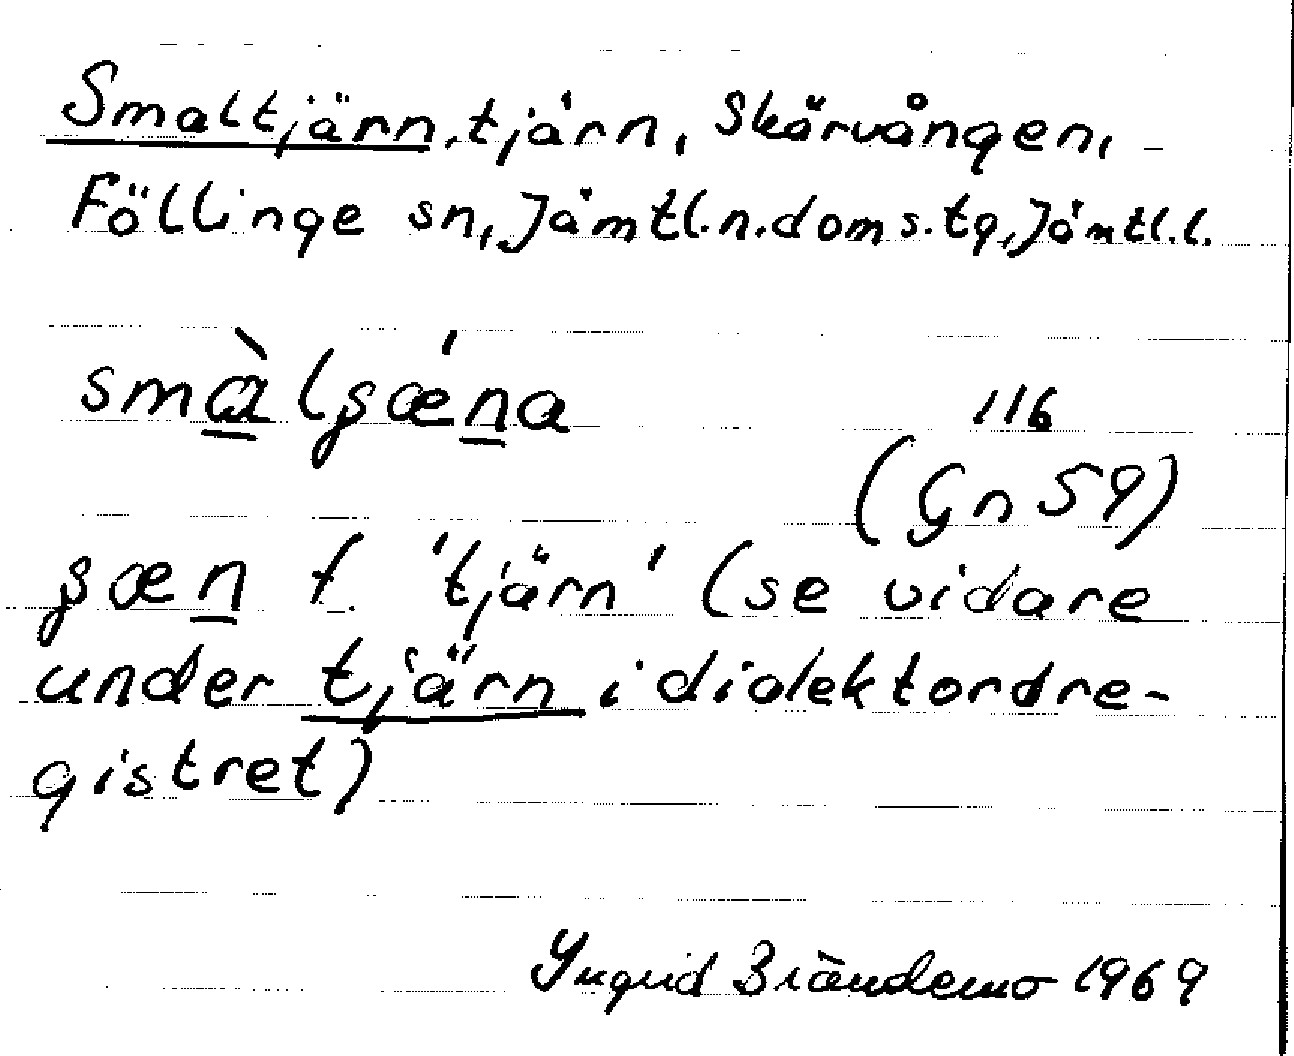 Smaltjärn, tjärn, Skärvången,
Föllinge sn, Jämtl.n.doms.tg, Jämtl.l.
smàlʂǽna
116
(Gn 59)
ʂæn f. 'tjärn' (se vidare
under tjärn i dialektordre-
gistret)
Ingrid Brändemo 1969